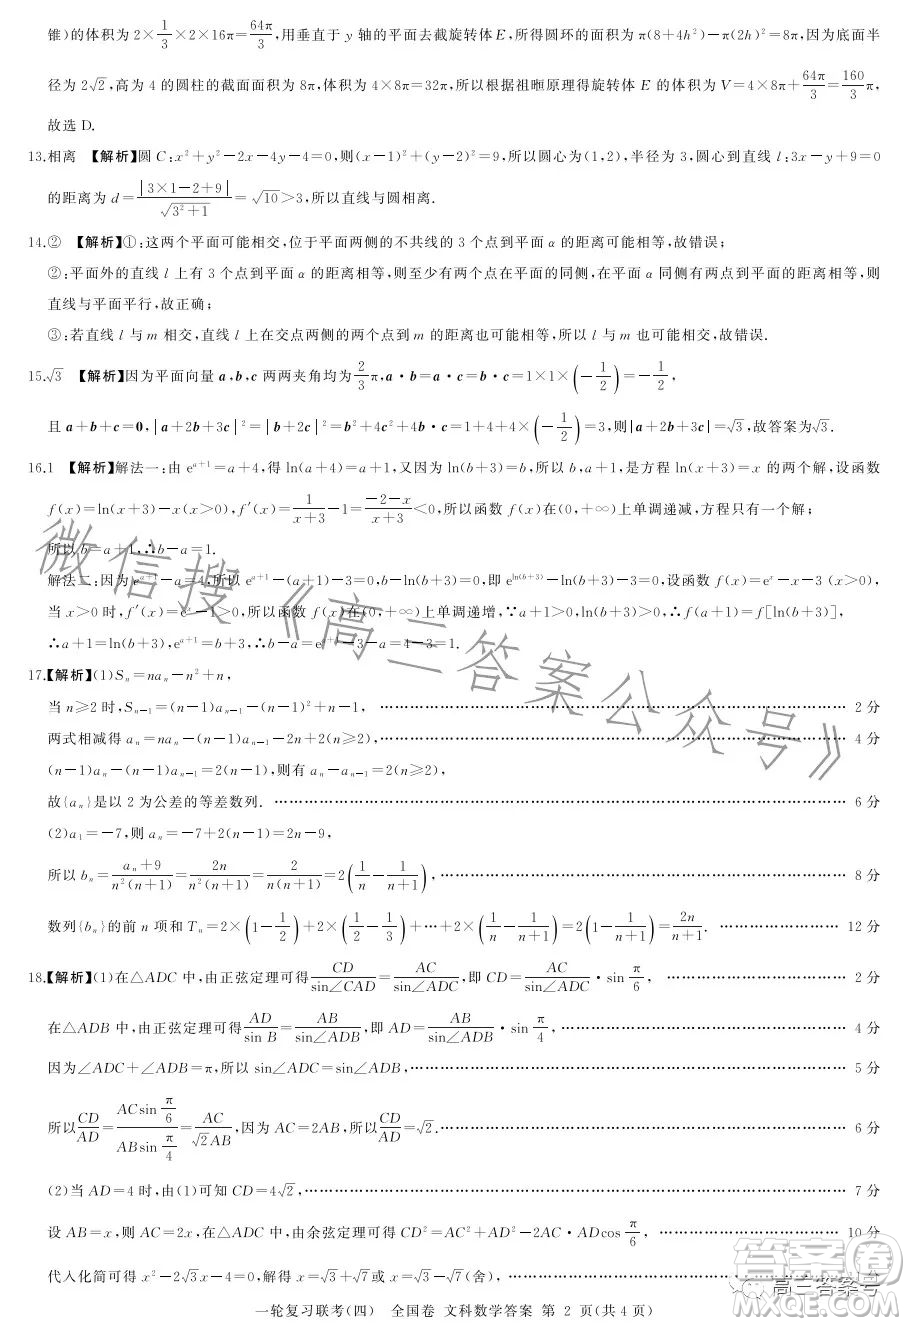 锥)的体积为 2×1/3×2×16π=64π/3,用垂直于 y 轴的平面去截旋转体E,所得圆环的面积为 π(8+4h²)-π(2h)²=8π,因为底面半
径为 2√2,高为 4 的圆柱的截面面积为 8π,体积为 4×8π=32π,所以根据祖暅原理得旋转体 E 的体积为 V=4×8π+64π/3=160/3π,
故选 D.
13.相离 【解析】圆 C:x²+y²-2x-4y-4=0,则(x-1)²+(y-2)²=9,所以圆心为(1,2),半径为 3,圆心到直线 l:3x-y+9=0
的距离为 d=|3×1-2+9|/√(3²+1)=√10>3,所以直线与圆相离.
14.② 【解析】①:这两个平面可能相交,位于平面两侧的不共线的 3 个点到平面 α 的距离可能相等,故错误;
②:平面外的直线 l 上有 3 个点到平面 α 的距离相等,则至少有两点在平面的同侧,在平面 α 同侧有两点到平面的距离相等,则
直线与平面平行,故正确;
③:若直线 l 与 m 相交,直线 l 上在交点两侧的两个点到 m 的距离也可能相等,所以 l 与 m 也可能相交,故错误.
15.√3 【解析】因为平面向量 a,b,c 两两夹角均为2/3π,a·b=a·c=b·c=1×1×(-1/2)=-1/2,
且 a+b+c=0,|a+2b+3c|²=|b+2c|²=b²+4c²+4b·c=1+4+4×(-1/2)=3,则|a+2b+3c|=√3,故答案为√3.
16.1 【解析】解法一:由 e^(a+1)=a+4,得 ln(a+4)=a+1,又因为 ln(b+3)=b,所以 b,(a+1),是方程 ln(x+3)=x 的两个解,设函数
f(x)=ln(x+3)-x(x>0),f′(x)=1/(x+3)-1=(-2-x)/(x+3)<0,所以函数 f(x)在(0,+∞)上单调递减,方程只有一个解;
所以 b=a+1,∴b-a=1.
解法二:因为e^(a+1)-a=4,所以 e^(a+1)-(a+1)-3=0,b-ln(b+3)=0,即 e^(ln(b+3))-ln(b+3)-3=0,设函数 f(x)=e^x-x-3 (x>0),
当 x>0 时,f′(x)=e^x-1>0,所以函数 f(x)在(0,+∞)上单调递增,∵a+1>0,ln(b+3)>0,∴f(a+1)=f[ln(b+3)],
∴a+1=ln(b+3),e^(a+1)=b+3,∴b-a=e^(a+1)-3-a=4-3=1.
17.【解析】(1)Sₙ=naₙ-n²+n,
当 n≥2 时,Sₙ₋₁=(n-1)aₙ₋₁-(n-1)²+n-1, …… 2 分
两式相减得 aₙ=naₙ-(n-1)aₙ₋₁-2n+2(n≥2), …… 4 分
(n-1)aₙ-(n-1)aₙ₋₁=2(n-1),则有 aₙ-aₙ₋₁=2(n≥2),
故{aₙ}是以 2 为公差的等差数列. …… 6 分
(2)a₁=-7,则 aₙ=-7+2(n-1)=2n-9,
所以 bₙ=(aₙ+9)/(n²(n+1))=2n/(n²(n+1))=2/(n(n+1))=2(1/n-1/(n+1)), …… 8 分
数列{bₙ}的前 n 项和 Tₙ=2×(1-1/2)+2×(1/2-1/3)+…+2×(1/n-1/(n+1))=2(1-1/(n+1))=2n/(n+1). …… 12 分
18.【解析】(1)在△ADC 中,由正弦定理可得CD/sin∠CAD=AC/sin∠ADC,即 CD=AC/sin∠ADC·sin π/6, …… 2 分
在△ADB 中,由正弦定理可得AD/sin B=AB/sin∠ADB,即 AD=AB/sin∠ADB·sin π/4, …… 4 分
因为∠ADC+∠ADB=π,所以 sin∠ADC=sin∠ADB, …… 5 分
所以CD/AD=(ACsin π/6)/(ABsin π/4)=AC/(√2AB),因为 AC=2AB,所以CD/AD=√2. …… 6 分
(2)当 AD=4 时,由(1)可知 CD=4√2, …… 7 分
设 AB=x,则 AC=2x,在△ADC 中,由余弦定理可得 CD²=AC²+AD²-2AC·ADcos π/6, …… 10 分
代入化简可得 x²-2√3x-4=0,解得 x=√3+√7或 x=√3-√7(舍), …… 分
一轮复习联考(四) 全国卷 文科数学答案 第 2 页(共 4 页)
微信搜《高三答案公众号》
答案卷
高三答案号